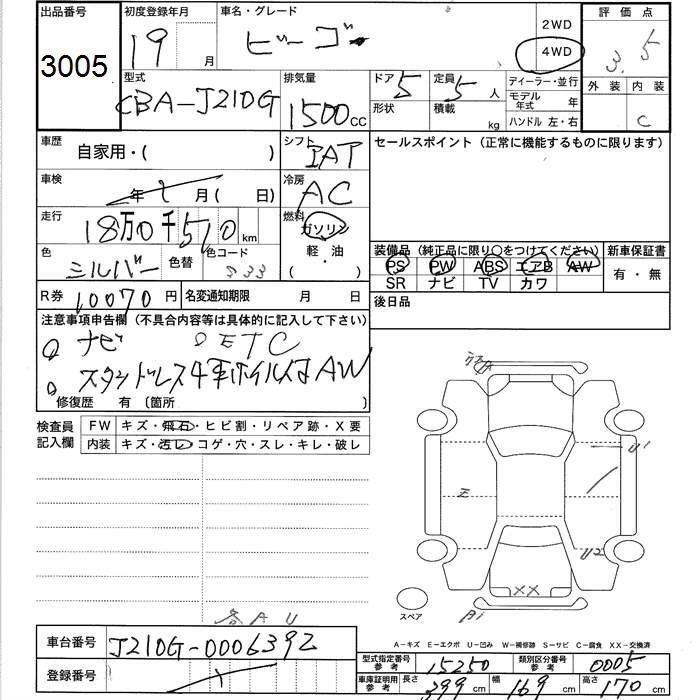 出品番号 初度登録年月 車名・グレード 2WD 評価点
3005 19 月 ビーゴ 4WD 3.5
型式 排気量 ドア 5 定員 5 人 ディーラー・並行 外装 内装
CBA-J210G 1500 CC 形状 積載 kg モデル年式 年 C
ハンドル 左・右
車歴 自家用・( ) シフト IAT セールスポイント (正常に機能するものに限ります)
車検 年 月 ( 日) 冷房 AC
走行 18万0千510 km 燃料 ガソリン
軽・油
( ・ )
色 シルバー 色替 色コード 装備品 (純正品に限り○をつけてください) 新車保証書
PS PW ABS エアB AW 有・無
SR ナビ TV カワ
R券 10070 円 名変通知期限 月 日 後日品
注意事項申告欄 (不具合内容等は具体的に記入して下さい)
○ ナビ ○ETC
○ スタッドレス4本ホイル付AW
修復歴 有 〔箇所 〕
検査員記入欄 FW キズ・飛石・ヒビ割・リペア跡・X要
内装 キズ・汚レ・コゲ・穴・スレ・キレ・破レ
U1
E
U2
XX
スペア
各AU
A-キズ E-エクボ U-凹み W-補修跡 S-サビ C-腐食 XX-交換済
車台番号 J210G-0006392
型式指定番号参考 15250 類別区分番号参考 0005
登録番号
車庫証明用参考 長さ 399 cm 幅 169 cm 高さ 170 cm